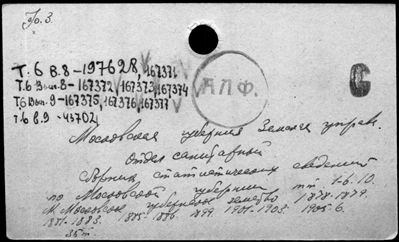 Zo. 3.
Т. 6 В. 8 - 197628, 167371
Т. 6 Вып. 8 - 167372, 167373, 167374
Т. 6 Вып. 9 - 167375, 167376, 167377
Т. 6 в. 9 - 43702
АПФ.
С
Московская губерния Земская управ.
Отдел санитарной
Сборник статистических сведений
по Московской губернии тт 1-6.10.
М. Московское губернское земство 1878-1879.
1881-1883. 1885-1886. 1899 1901-1903. 1905-6.